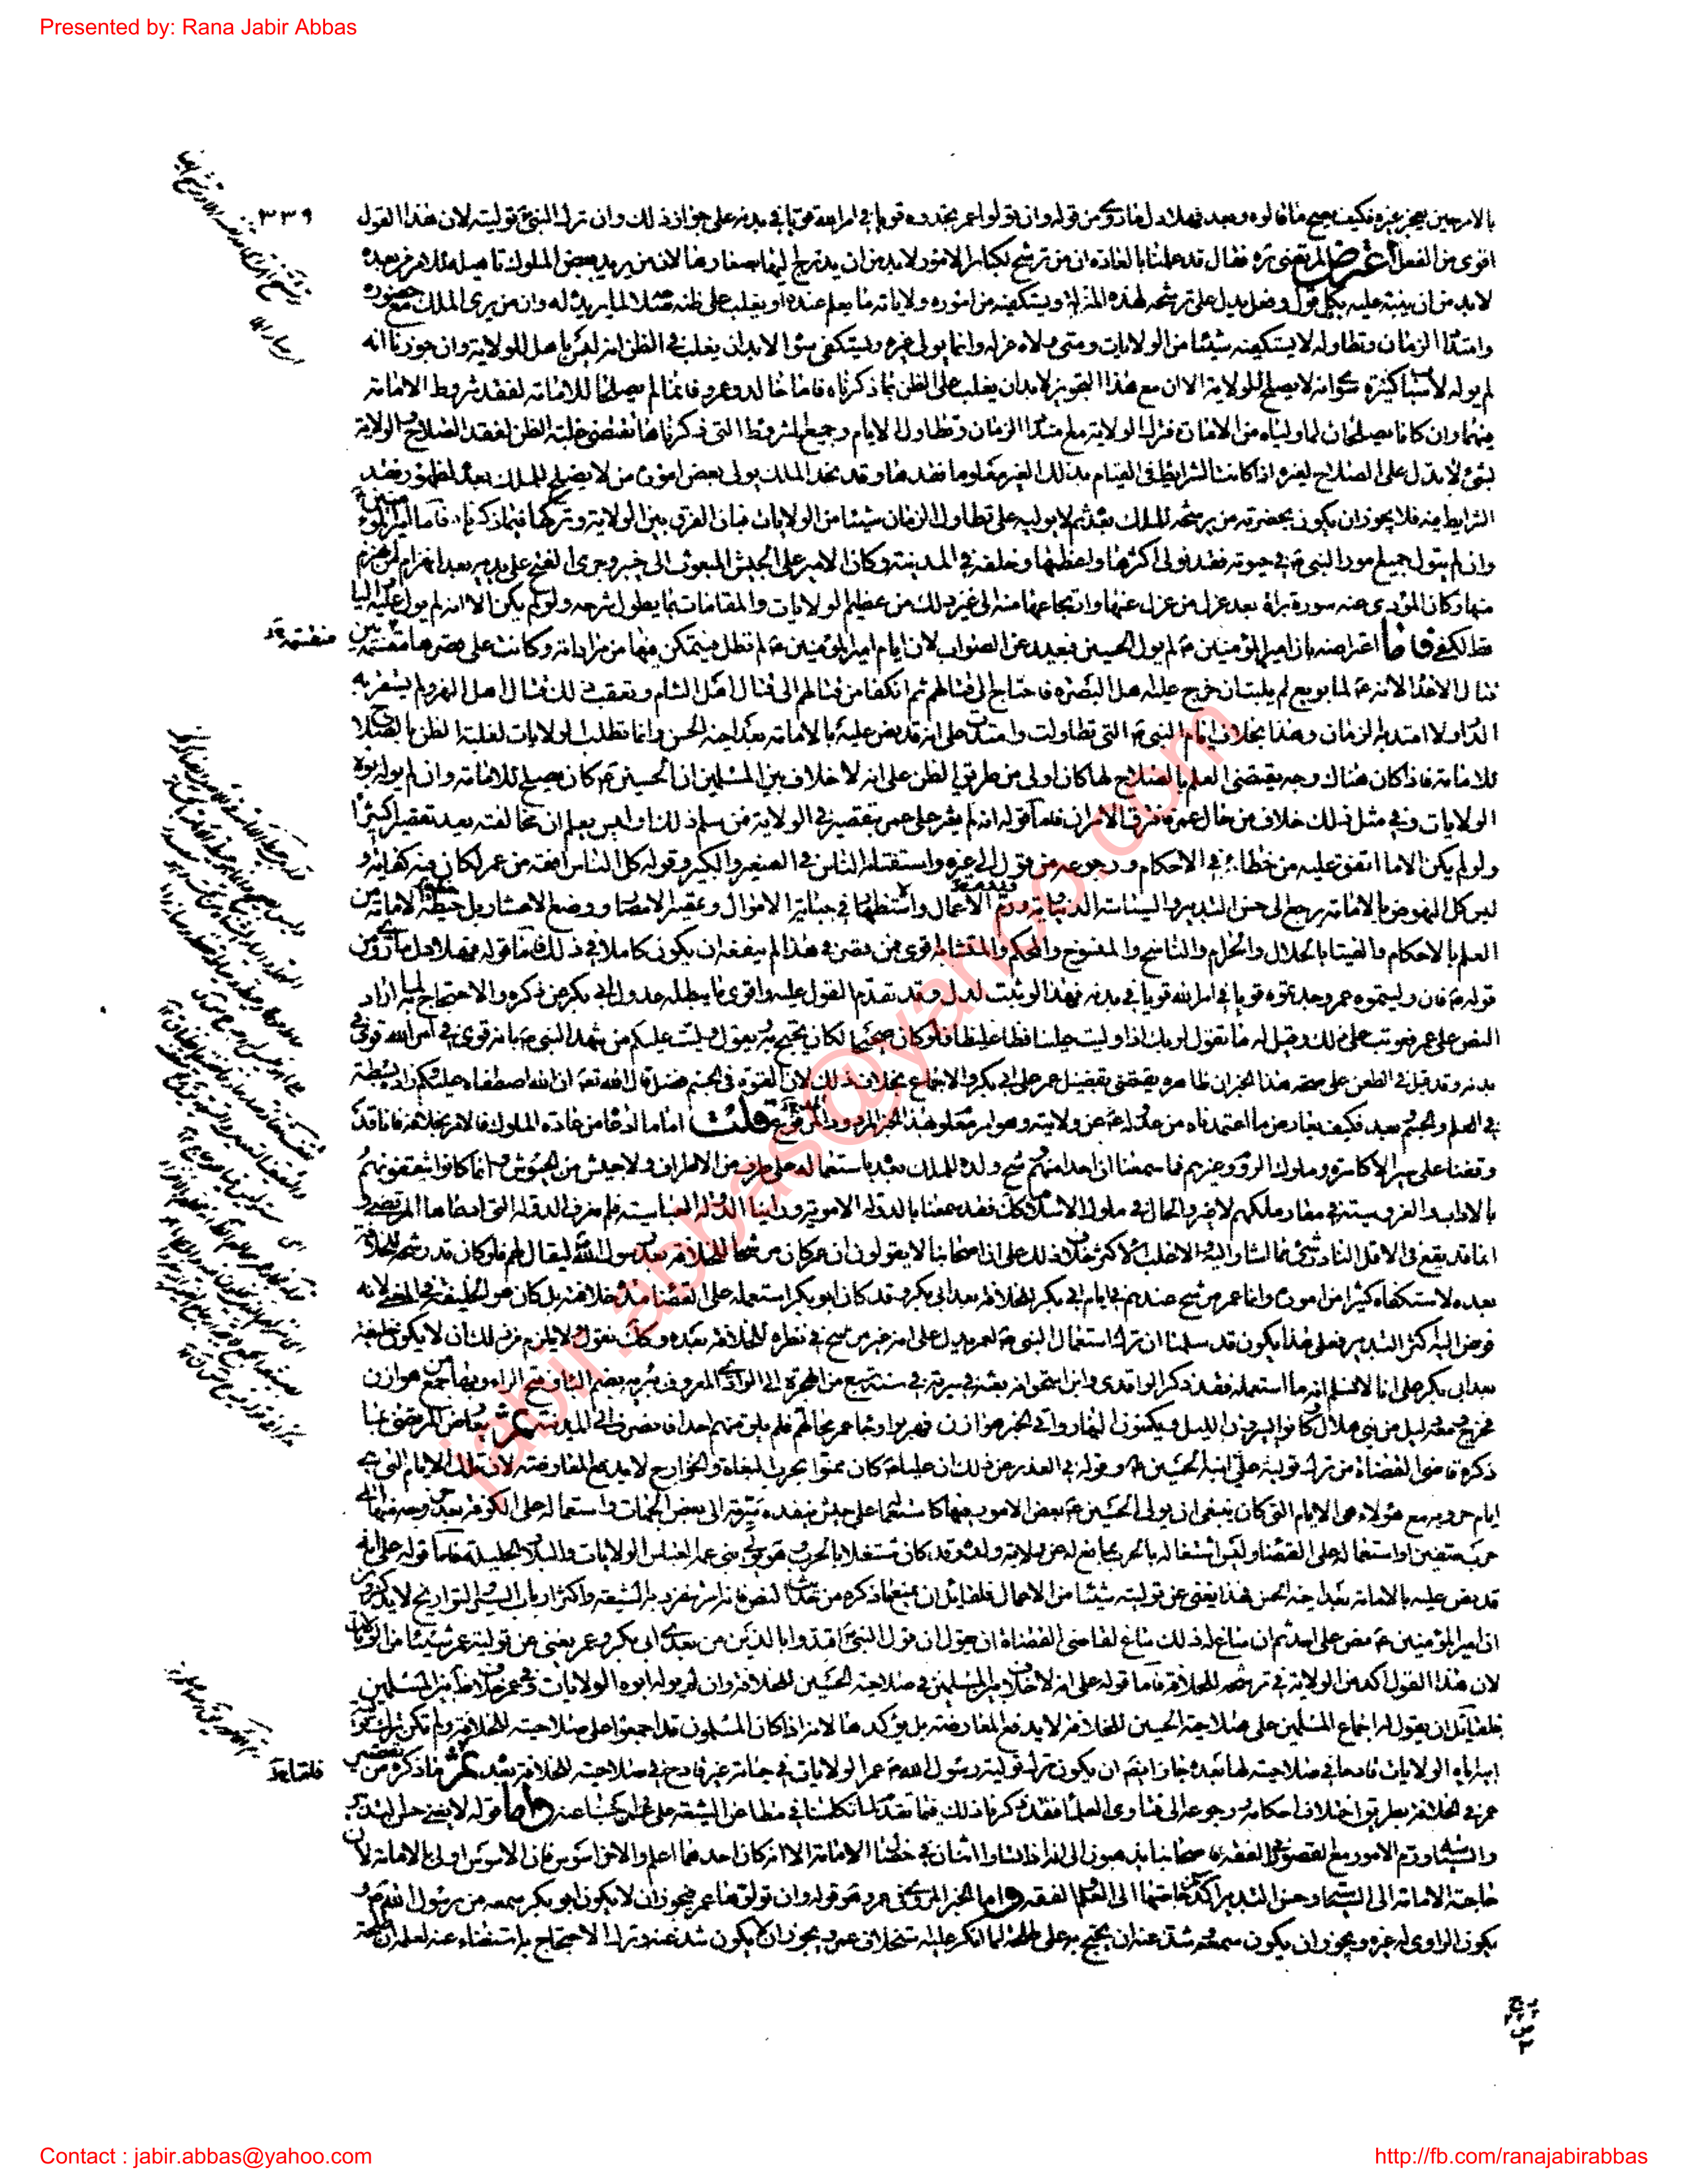 Presented by: Rana Jabir Abbas
٣٣٩
بالامر حين يعجز غيره فكيف يصح ما قالوه وبعد فهلا دل ما روى من قوله وان تولوا عمر تجدوه قويا في امر الله قويا في بدنه على جواز ذلك وان ترك النبي ص توليته لان هذا القول
اقوى من الفعل اعترض المرتضى ره فقال قد علمنا بالعادة ان من ترشح لكبار الامور لا بد من ان يدرج اليها بصغارها لان من يريد بعض الملوك تاهيله للامر من بعده
لا بد من ان ينبه عليه بكل قول وفعل يدل على ترشحه لهذه المنزلة ويستكفيه من اموره ولاياته ما يعلم عنده او يغلب على ظنه صلاحه لما يريده له وان من يرى الملك مع حضوره
وامتداد الزمان وتطاوله لا يستكفيه شيئا من الولايات ومتى ولاه عزله وانما يولى غيره ويستكفى سواه لا بد ان يغلب في الظن انه ليس باهل للولاية وان جوزنا انه
لم يوله لاسباب كثيرة سوى انه لا يصلح للولاية الا ان مع هذا التجويز لا بد ان يغلب على الظن بما ذكرناه فاما خالد وعمرو فانما لم يصلحا للامامة لفقد شروط الامامة
فيهما وان كانا يصلحان لما ولياه من الامارة فترك الولاية مع امتداد الزمان وتطاول الايام وجميع الشروط التي ذكرناها تقتضى غلبة الظن لفقد الصلاح والولاية
لشئ لا تدل على الصلاح لغيره اذا كانت الشرايط في القيام بذلك الغير معلوما فقدها وقد نجد الملك يولى بعض اموره من لا يصلح للملك بعده لظهور فقد
الشرايط فيه فلا يجوز ان يكون بحضرته من يرشحه للملك بعده ثم لا يوليه على تطاول الزمان شيئا من الولايات فبان الفرق بين الولاية وتركها فيما ذكرناه فاما امير المؤمنين ع
وان لم يتول جميع امور النبي ص في حيوته فقد تولى اكثرها واعظمها وخلفه في المدينة وكان الامير على الجيش المبعوث الى خيبر وجرى الفتح على يديه بعد انهزام من انهزم
منها وكان المؤدى عنه سورة براءة بعد عزل من عزل عنها وارتجاعها منه الى غير ذلك من عظيم الولايات والمقامات بما يطول شرحه ولو لم يكن الا انه لم يول عليه واليا
قط لكفى فاما اعتراضه بان امير المؤمنين ع لم يول الحسين فبعيد عن الصواب لان ايام امير المؤمنين ع لم تطل فيتمكن فيها من مراداته وكانت على قصرها منقسمة بين
منقسمة
قتال الاعداء لانه ع لما بويع لم يلبث ان خرج عليه اهل البصرة فاحتاج الى قتالهم ثم انكفا من قتالهم الى قتال اهل الشام وتعقب ذلك قتال اهل النهروان ولم تستقر به
الدار ولا امتد به الزمان وهذا بخلاف ايام النبي ص التي تطاولت وامتدت على انه قد نص عليه بالامامة بعد اخيه الحسن وانما تطلب الولايات لغلبة الظن بالصلاح
للامامة فاذا كان هناك وجه يقتضى العلم بالصلاح لها كان اولى من طريق الظن على انه لا خلاف بين المسلمين ان الحسين ع كان يصلح للامامة وان لم يوله ابوه
الولايات وفي مثل ذلك خلاف من حال عمر فافترق الامران فاما قوله انه لم يعثر على عمر بتقصير في الولاية فمن سلم ذلك اوليس يعلم ان مخالفته تعد تقصيرا كثيرا
ولو لم يكن الا ما اتفق عليه من خطائه في الاحكام ورجوعه من قول الى غيره واستفتائه الناس في الصغير والكبير وقوله كل الناس افقه من عمر لكان فيه كفاية و
ليس كل النهوض بالامامة يرجع الى حسن التدبير والسياسة الدنياوية ورم الاعمال والاستظهار في جباية الاموال وتمصير الامصار ووضع الاعشار بل حظ الامامة من
العلم بالاحكام والفتيا بالحلال والحرام والناسخ والمنسوخ والمحكم والمتشابه اقوى فمن قصر في هذا لم ينفعه ان يكون كاملا في ذلك فاما قوله فهلا دل ما روى من
قوله ع فان وليتموه عمر وجدتموه قويا في امر الله قويا في بدنه فهذا لو ثبت لدل وقد تقدم القول عليه واقوى ما يبطله عدول ابي بكر عن ذكره والاحتجاج به لما اراد
النص على عمر فعوتب على ذلك وقيل له ما تقول لربك اذا وليت علينا فظا غليظا فلو كان صحيحا لكان يحتج به ويقول وليت عليكم من شهد النبي ص بانه قوى في امر الله قوى في
بدنه وقد قيل في الطعن على صحة هذا الخبر ان ظاهره يقتضى تفضيل عمر على ابي بكر والاجماع بخلاف ذلك لان القوة في الجسم فضل قال الله تعالى ان الله اصطفاه عليكم وزاده بسطة
في العلم والجسم وبعد فكيف يعارض ما اعتمدناه من عدوله ع عن ولايته وهو امر معلوم بهذا الخبر المردود المدفوع قلت اما ما ادعاه من عادة الملوك فالامر بخلافه فانا قد
وقفنا على سير الاكاسرة وملوك الروم وغيرهم فما سمعنا ان احدا منهم رشح ولده للملك بعده باستعماله على طرف من الاطراف ولا جيش من الجيوش وانما كانوا يثقفونهم
بالاداب والفروسية في مقار ملكهم لا غير والحال في ملوك الاسلام كذلك فقد سمعنا بالدولة الاموية وراينا الدولة العباسية فلم نعرف الدولة التي ادعاها المرتضى و
انما قد يقع في الاقل النادر شئ مما اشار اليه والاغلب الاكثر خلاف ذلك على ان اصحابنا لا يقولون ان عمر كان مرشحا للخلافة بعد رسول الله ليقال لهم فلو كان قد رشحه للخلافة
بعده لاستكفاه كثيرا من اموره وانما عمر مرشح عندهم في ايام ابي بكر للخلافة بعد ابي بكر وقد كان ابو بكر استعمله على القضاء مدة خلافته بل كان هو الخليفة في المعنى لانه
فوض اليه اكثر التدبير فعلى هذا يكون قد سلمنا ان ترك استعمال النبي ص لعمر يدل على انه غير مرشح في نظره للخلافة بعده وكذلك نقول ولا يلزم من ذلك ان لا يكون خليفة
بعد ابي بكر على انا لا نسلم انه ما استعمله فقد ذكر الواقدى وابن اسحق انه بعثه في سرية في سنة سبع من الهجرة الى الوادى المعروف ببرمة بضم الباء وفتح الراء وبها جمع من هوازن
فخرج ومعه دليل من بني هلال وكانوا يسيرون الليل ويكمنون النهار واتى الخبر هوازن فهربوا وجاء عمر محالهم فلم يلق منهم احدا فانصرف الى المدينة ثم يعارض المرتضى بما
ذكره قاضى القضاة من ترك توليته علي ابنه الحسين ع وقوله في العذر عن ذلك ان عليا ع كان ممنوا بحرب البغاة والخوارج لا يدفع المعارضة لان تلك الايام التي هي
ايام حروبه مع هؤلاء هي الايام التي كان ينبغى ان يولى الحسين ع بعض الامور فيها كاستعماله على جيش ينفذه سرية الى بعض الجهات واستعماله على الكوفة بعد خروجه منها الى
حرب صفين او استعماله على القضاء وليس اشتغاله بالحرب بمانع له عن ولاية ولده وقد كان مشتغلا بالحرب وهو يولى بني عمه العباس الولايات والبلاد الجليلة فاما قوله على انه
قد نص عليه بالامامة بعد اخيه الحسن فهذا يغنى عن توليته شيئا من الاعمال فلقائل ان يمنع ما ذكره من حديث النص فانه امر تنفرد به الشيعة واكثر ارباب السير والتواريخ لا يذكرون
ان امير المؤمنين ع نص على احد ثم ان ساغ له ذلك ساغ لقاضى القضاة ان يقول ان قول النبي ص اقتدوا بالذين من بعدى ابي بكر وعمر يغنى عن تولية عمر شيئا من الولايات
لان هذا القول اكد من الولاية في ترشحه للخلافة فاما قوله على انه لا خلاف بين المسلمين في صلاحية الحسين للخلافة وان لم يوله ابوه الولايات وفي عمر خلاف ظاهر بين المسلمين
فلقائل ان يقول له اجماع المسلمين على صلاحية الحسين للخلافة لا يدفع المعارضة بل يؤكدها لانه اذا كان المسلمون قد اجمعوا على صلاحيته للخلافة ولم تكن ترك تولية
ابيه اياه الولايات قادحا في صلاحيته لها بعده جاز ايضا ان يكون ترك تولية رسول الله ص عمر الولايات في حياته غير قادح في صلاحيته للخلافة بعده ثم ما ذكره من تقصير
عمر في الخلافة بطريق اختلاف احكامه ورجوعه الى فتاوى العلماء فقد ذكرنا ذلك فيما تقدم لما تكلمنا في مطاعن الشيعة على عمر واجبنا عنه واما قوله لا يغنى حسن التدبير
والسياسة ورم الامور مع القصور في الفقه فاصحابنا يذهبون الى انه اذا تساوى اثنان في خصال الامامة الا انه كان احدهما اعلم والاخر اسوس فان الاسوس اولى بالامامة لان
حاجة الامامة الى السياسة وحسن التدبير اكد من حاجتها الى العلم والفقه واما الخبر المروى في عمر وهو قوله وان تولوها عمر فيجوز ان لا يكون ابو بكر سمعه من رسول الله ص و
يكون الراوى له غيره ويجوز ان يكون سمعه وشذ عنه ان يحتج به على طلحة لما انكر عليه استخلاف عمر ويجوز ان لا يكون شذ عنه وترك الاحتجاج به استغناء عنه لعلمه ان طلحة
jabir.abbas@yahoo.com
Contact : jabir.abbas@yahoo.com
http://fb.com/ranajabirabbas